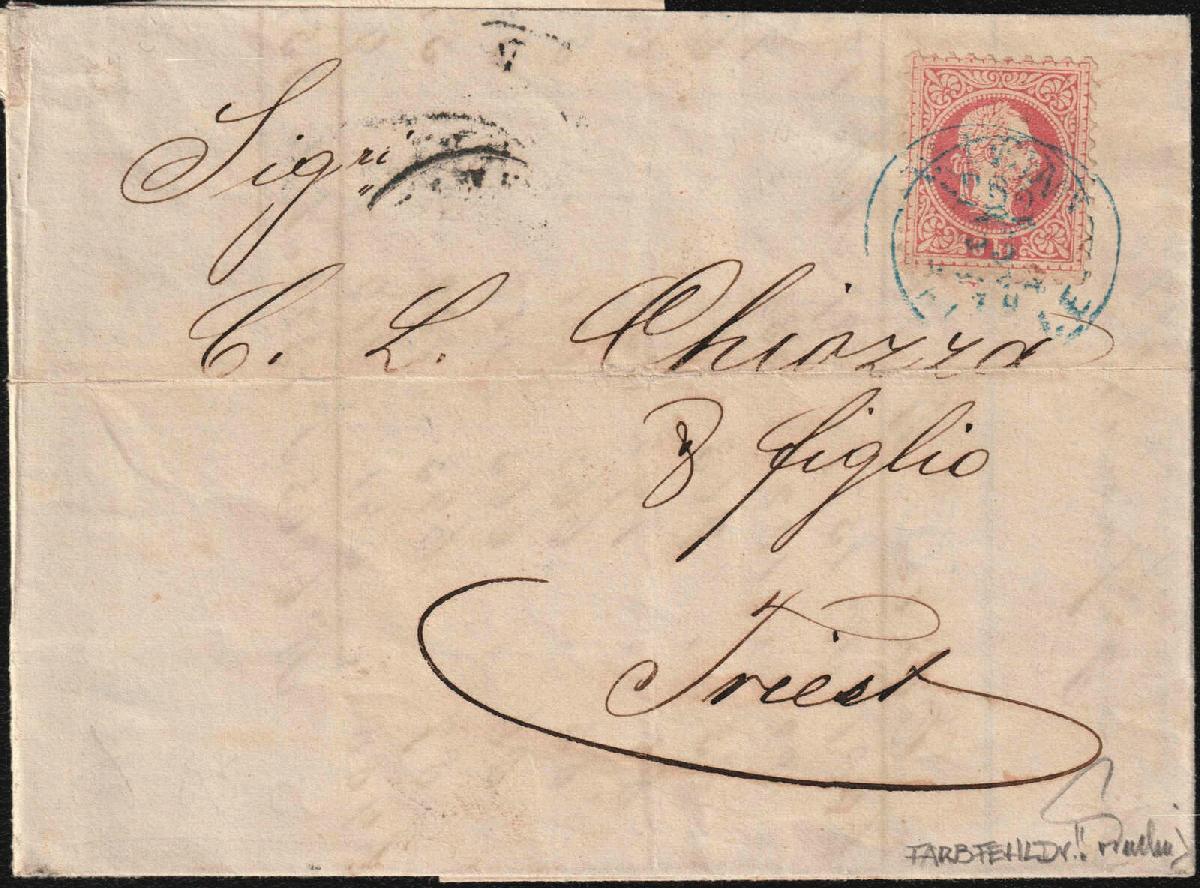 Sigri
C. L. Chiozza
& figlio
Triest
FARBFEHLDr.!!